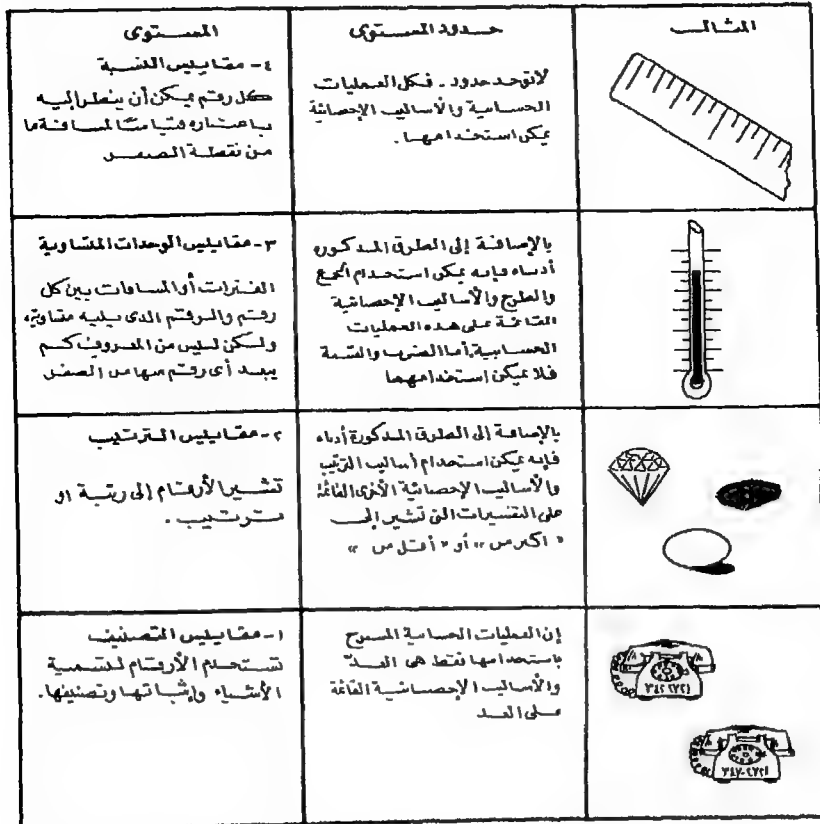 المستوى
حدود المستوى
المثال
٤- مقاييس النسبة
كل رقم يمكن أن ينظر إليه
باعتباره قياسًا لمسافة ما
من نقطة الصفر
لا توجد حدود - فكل العمليات
الحسابية والأساليب الإحصائية
يمكن استخدامها.
٣- مقاييس الوحدات المتساوية
الفترات أو المسافات بين كل
رقم والرقم الذى يليه متساوية
ولكن ليس من المعروف كم
يبعد أى رقم منها من الصفر
بالإضافة إلى الطرق المذكورة
أدناه فإنه يمكن استخدام الجمع
والطرح والأساليب الإحصائية
القائمة على هذه العمليات
الحسابية، أما الضرب والقسمة
فلا يمكن استخدامهما
٢- مقاييس الترتيب
تشير الأرقام إلى رتبة او
ترتيب.
بالإضافة إلى الطرق المذكورة أدناه
فإنه يمكن استخدام أساليب الترتيب
والأساليب الإحصائية الأخرى القائمة
على التفسيرات التى تشير إلى
« اكبر من » أو « أقل من »
١- مقاييس التصنيف
تستخدم الأرقام لتسمية
الأشياء وإثباتها وتصنيفها.
إن العمليات الحسابية المسموح
باستخدامها فقط هى العدّ
والأساليب الإحصائية القائمة
على العد